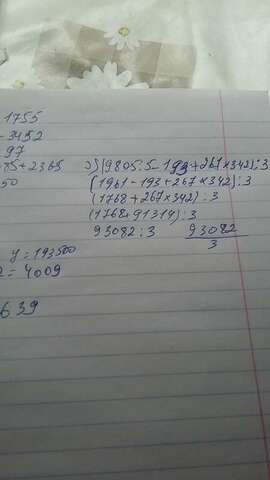 1755
-3452
97
85+2365
50
y=193500
2=4009
639
(9805:5-193+267×342):3
(1961-193+267×342):3
(1768+267×342):3
(1768+91314):3
93082:3
93082
3